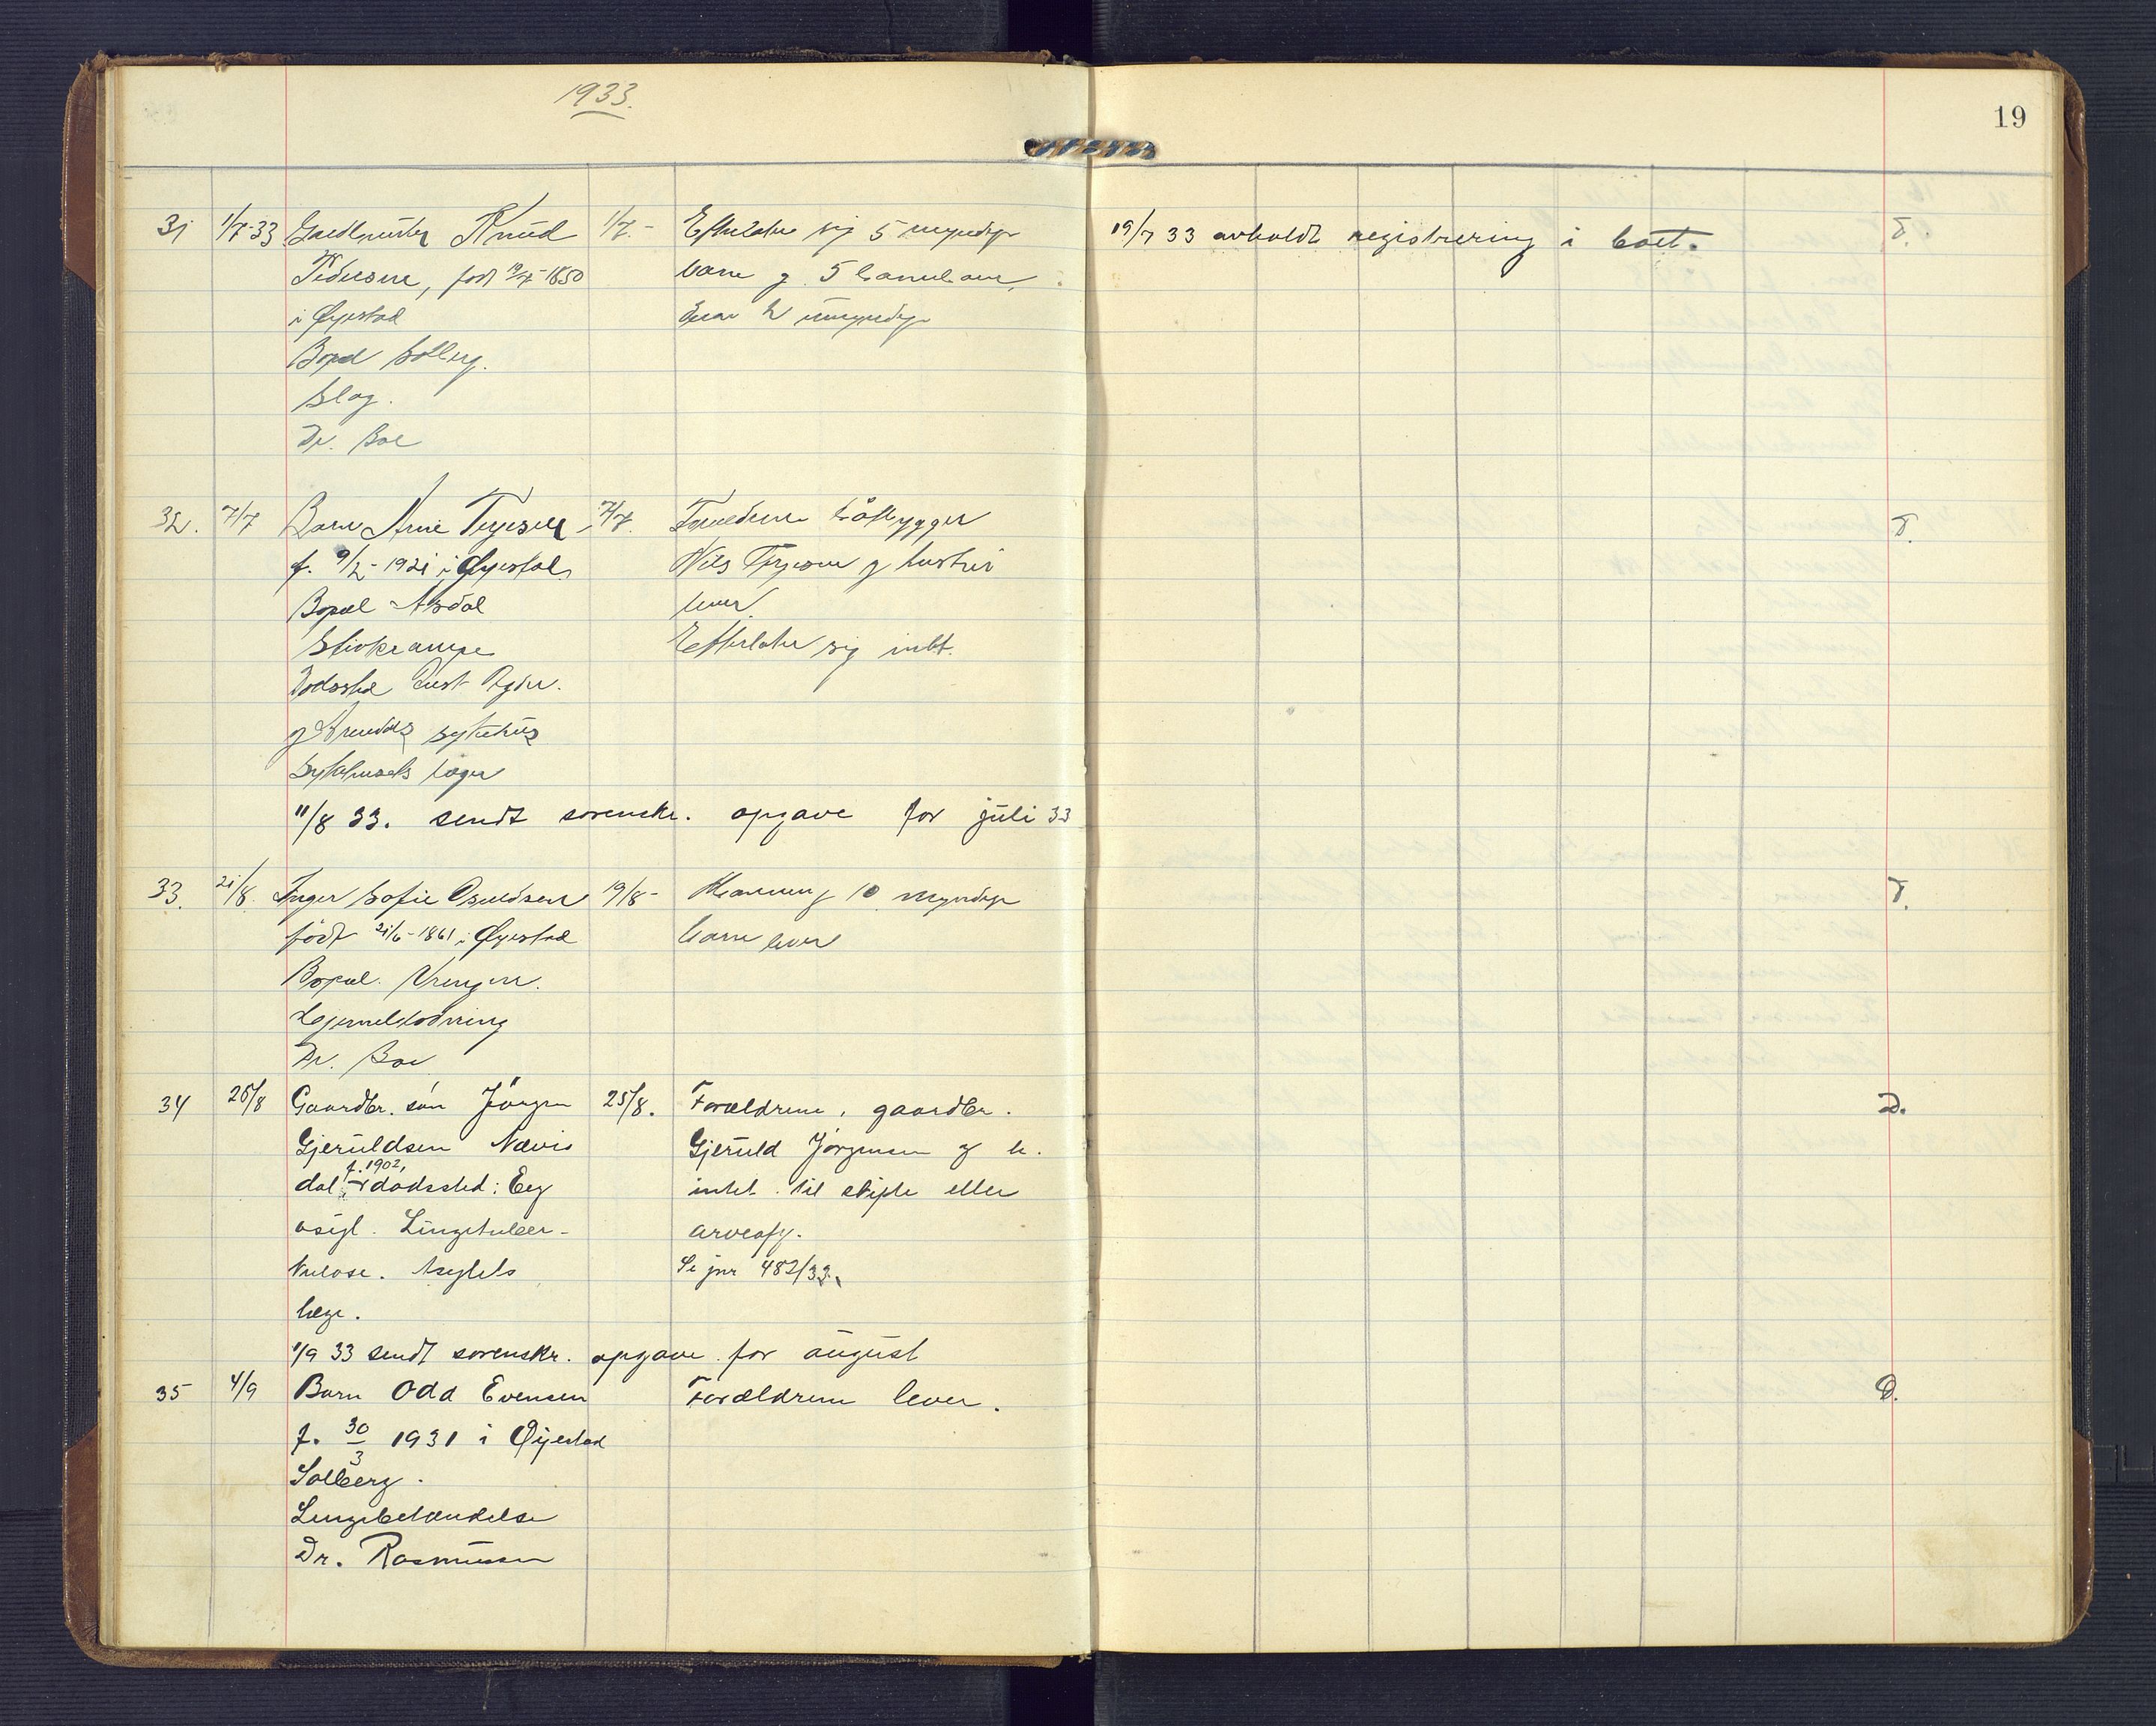 1933.
19
31 1/7-33 Knud 1/7- Efterlater sig 5 myndige 19/7 33 avholdt registrering i boet. T.
Pedersen, født 19/7-1850 barn g 5 barnebarn,
i Øyestad 2 umyndige
Bopæl Solberg.
Slag.
Dr. Boe
32. 7/7 Barn Arne Terjesen 7/7. Forældrene båtbygger T.
f. 9/2-1921 i Øyestad Nils Terjesen g hustru
Bopæl Asdal lever
Stivkrampe Efterlater sig intet.
Dødssted Aust Agder
g Arendals sykehus
Sykehusets læger
11/8 33. sendt sorenskr. opgave for juli 33
33. 21/8. Inger Sofie Osuldsen 19/8- Mannen g 10 myndige T.
født 21/6-1861 i Øyestad barn lever
Bopæl. Vrengen.
Dr. Boe
34 25/8 Gaardbr. søn Jörgen 25/8. Forældrene, gaardbr. D.
Gjeruldsen Nævis Gjeruld Jørgensen og h.
f. 1902,
dal, dødssted: Eeg intet til skifte eller
asyl. Lungetuber- arveafg.
kulose. Asylets Se jnr 482/33.
læge.
1/9 33 sendt sorenskr. opgave for august
35 4/9 Barn Odd Evensen Forældrene lever. D.
f. 30/3 1931 i Øyestad
Solberg.
Lungebetændelse
Dr. Rasmussen